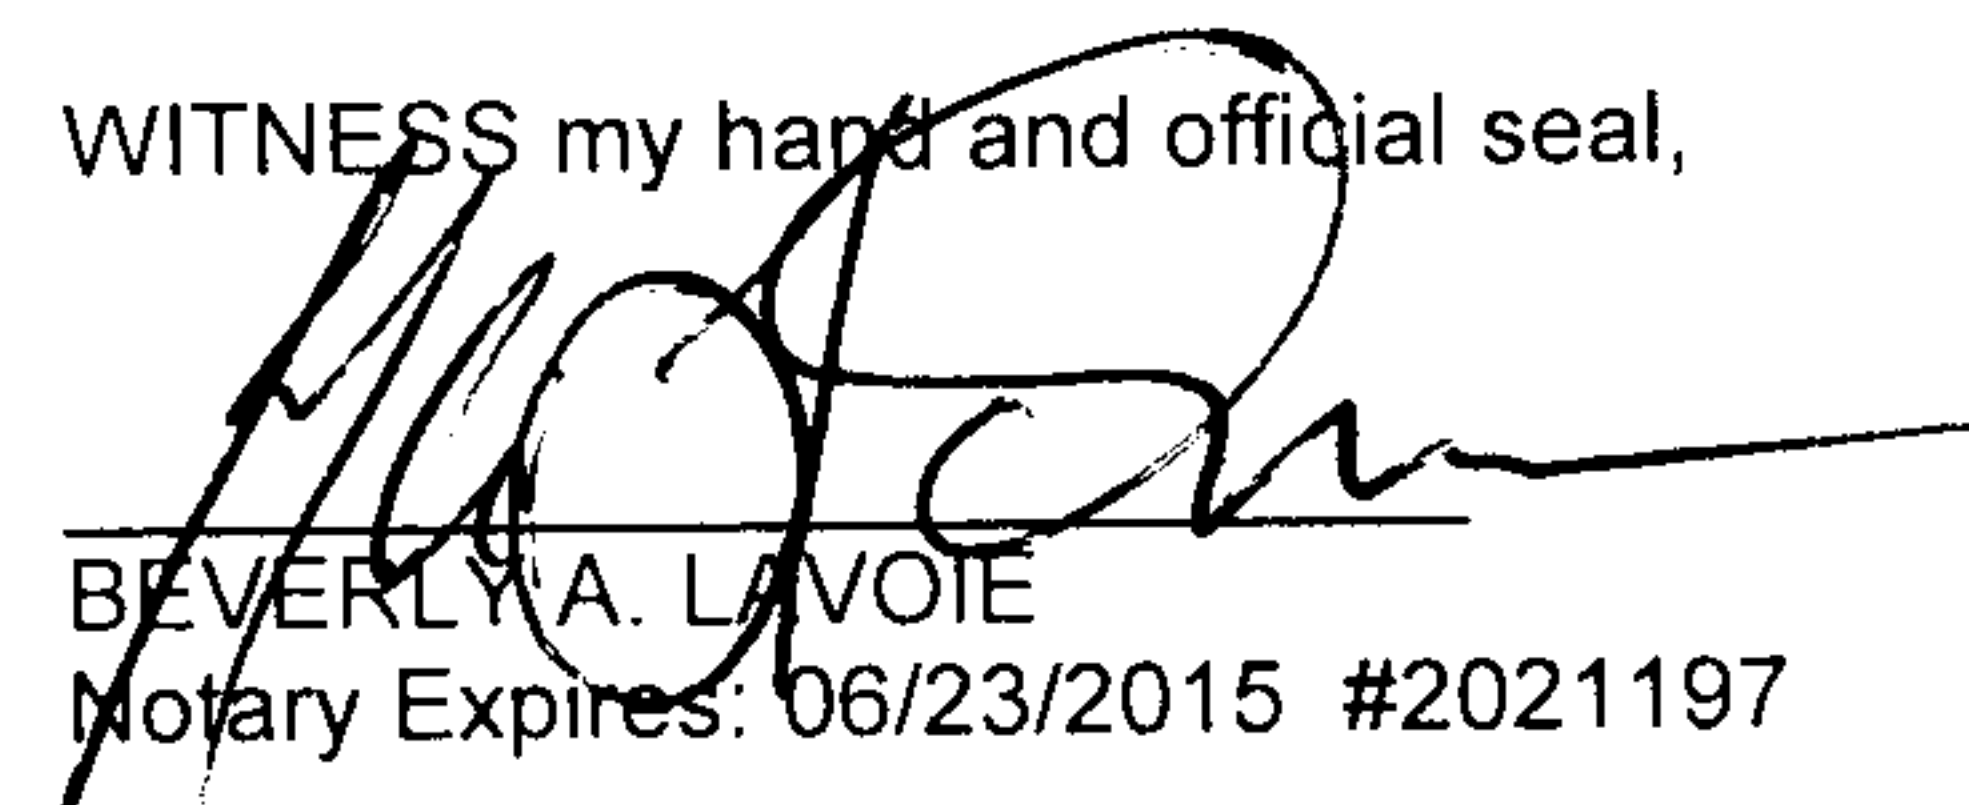 WITNESS my hand and official seal,
BEVERLY A. LAVOIE
Notary Expires: 06/23/2015 #2021197